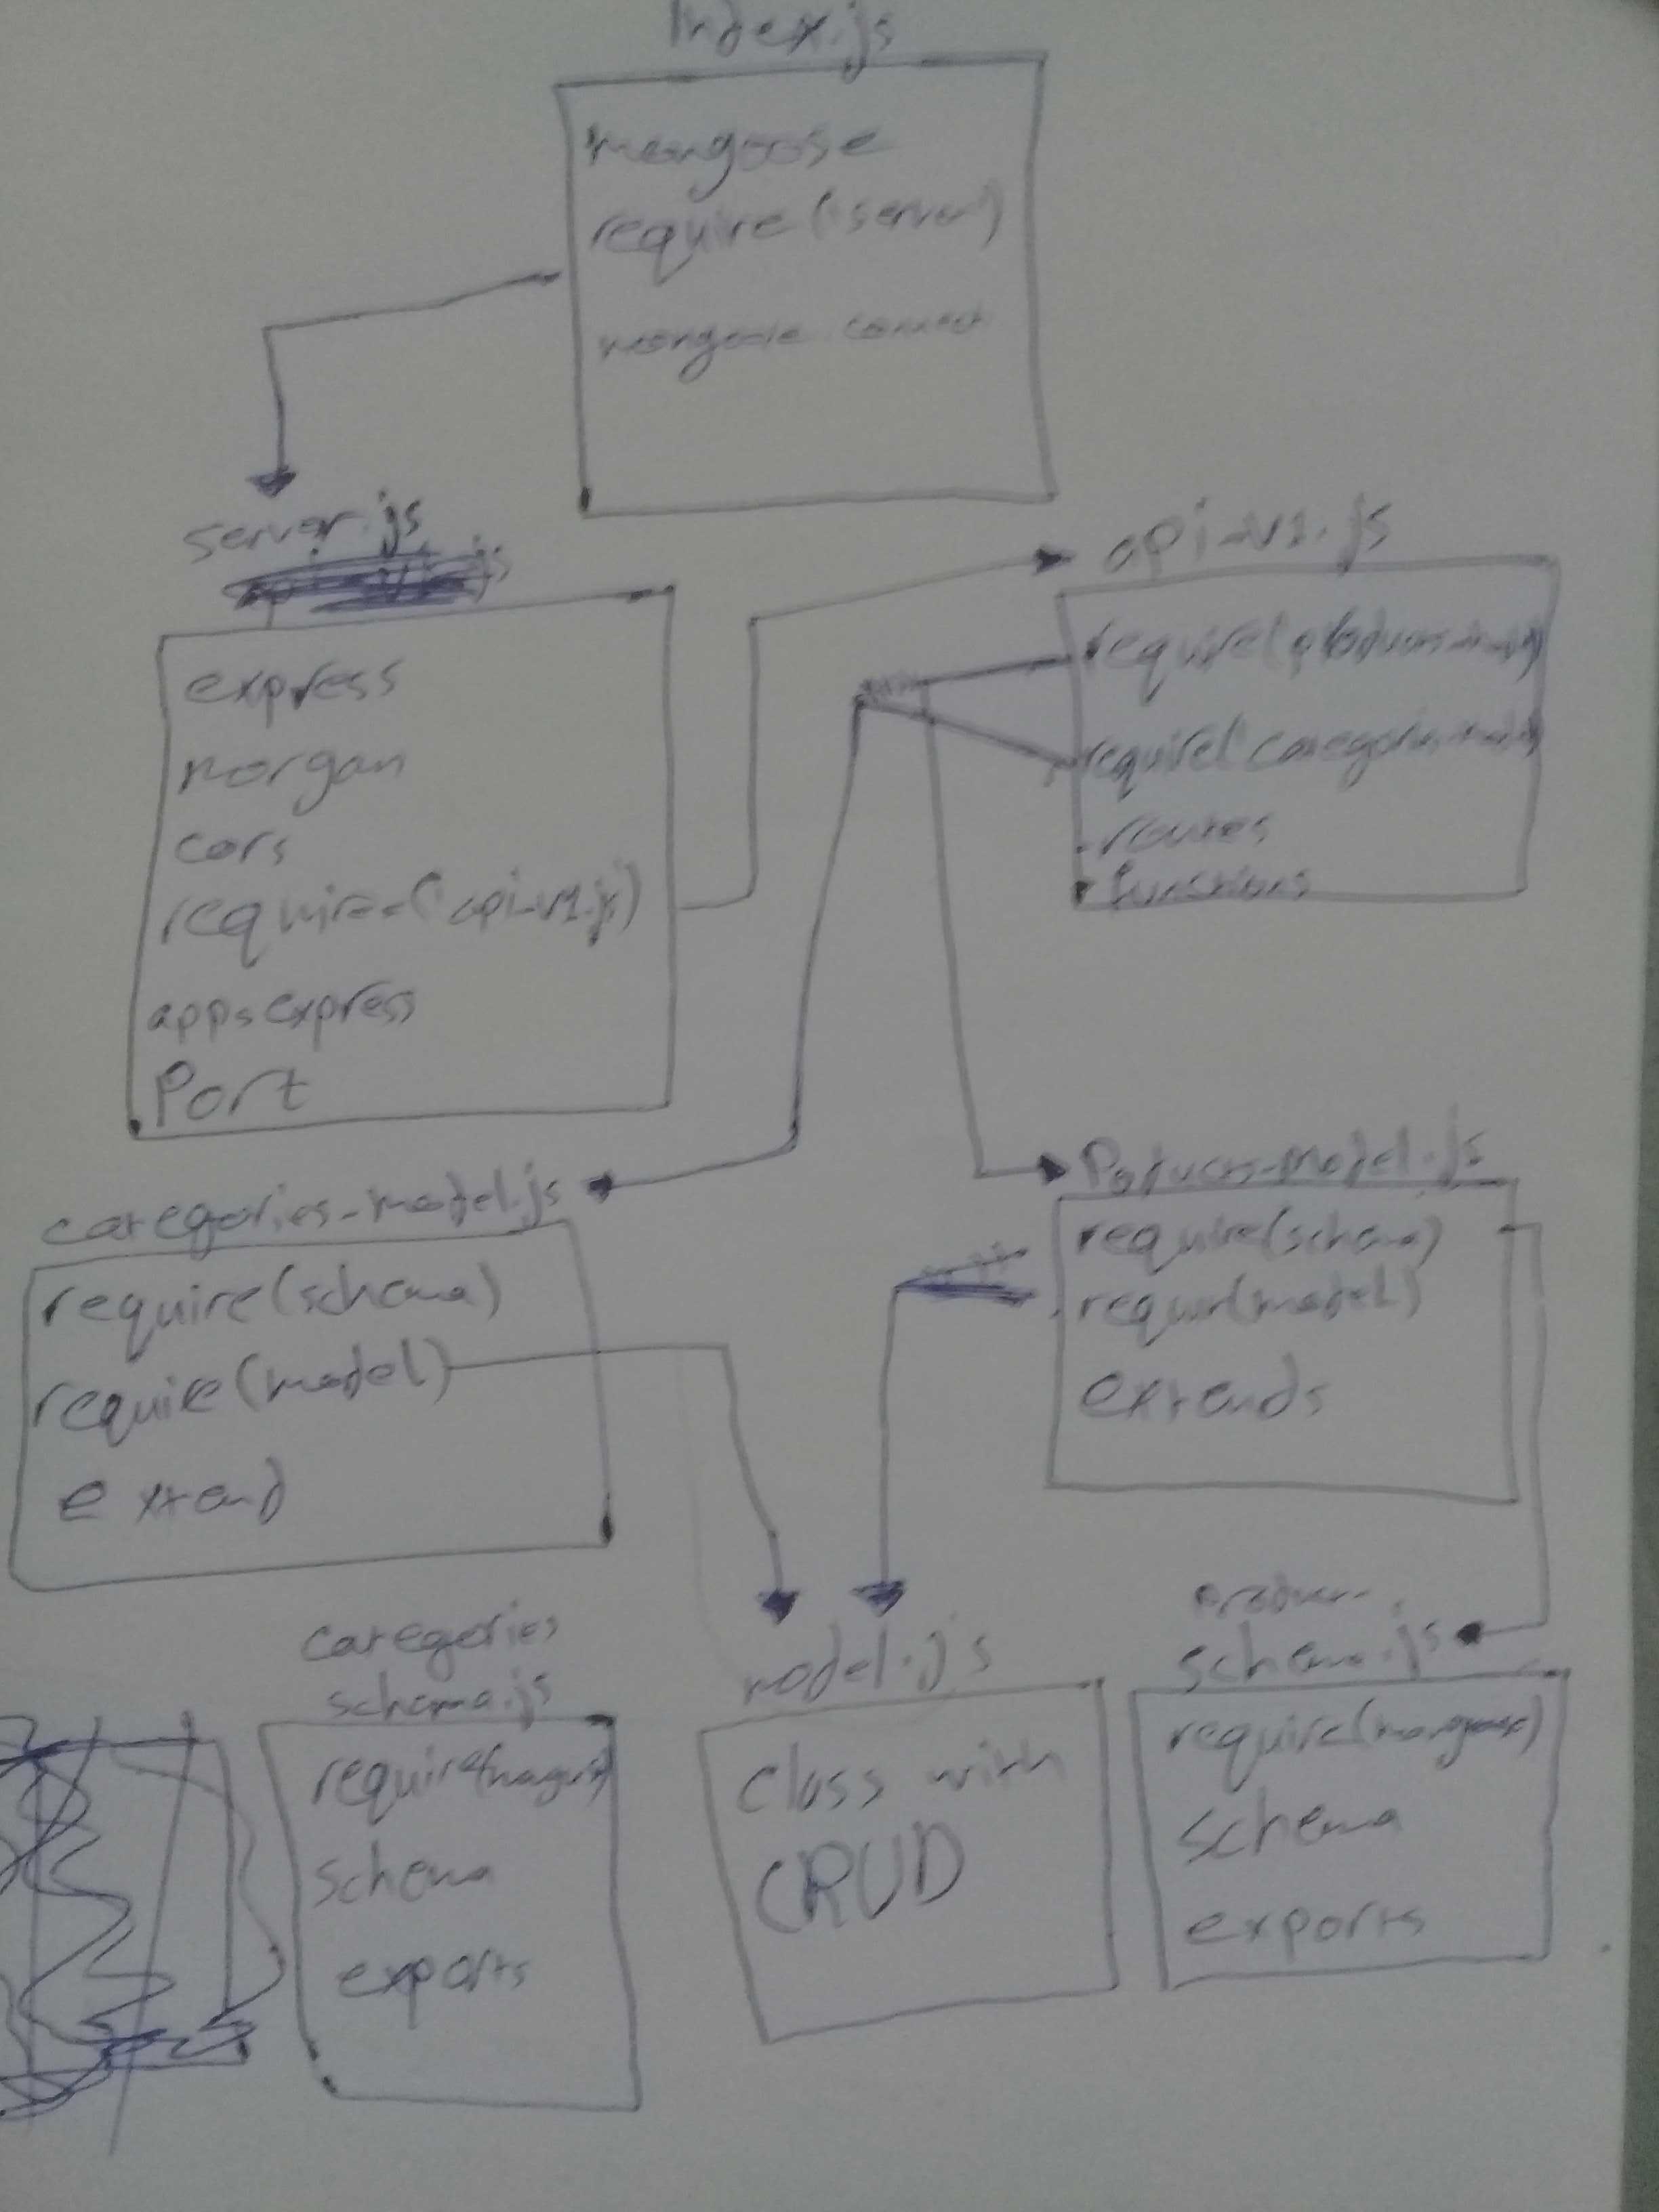 Index.js
mongoose
require('server')
mongoose.connect
server.js
express
morgan
cors
require-('api-v1.js)
app=express
Port
api-v1.js
require(
require('categories-
.routes
functions
categories-model.js
require(schema)
require(model)
extend
Poducts-model.js
require(schema)
requir(model)
extends
categories
schema.js
require(
schema
exports
model.js
class with
CRUD
schema.js
require(mongoose)
schema
exports